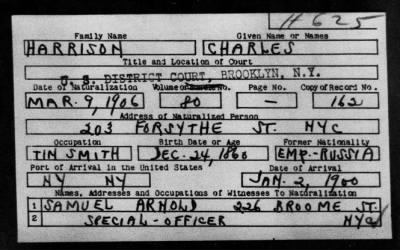 H 625
Family Name Given Name or Names
HARRISON CHARLES
Title and Location of Court
U. S. DISTRICT COURT, BROOKLYN, N.Y.
Date of Naturalization Volume or Bundle No. Page No. Copy of Record No.
MAR. 9, 1906 80 — 162
Address of Naturalized Person
203 FORSYTHE ST. NYC
Occupation Birth Date or Age Former Nationality
TIN SMITH DEC. 24, 1860 EMP.-RUSSIA
Port of Arrival in the United States Date of Arrival
NY NY JAN. 2, 1900
Names, Addresses and Occupations of Witnesses To Naturalization
1 SAMUEL ARNOLD 226 BROOME ST.
2 SPECIAL-OFFICER NYC